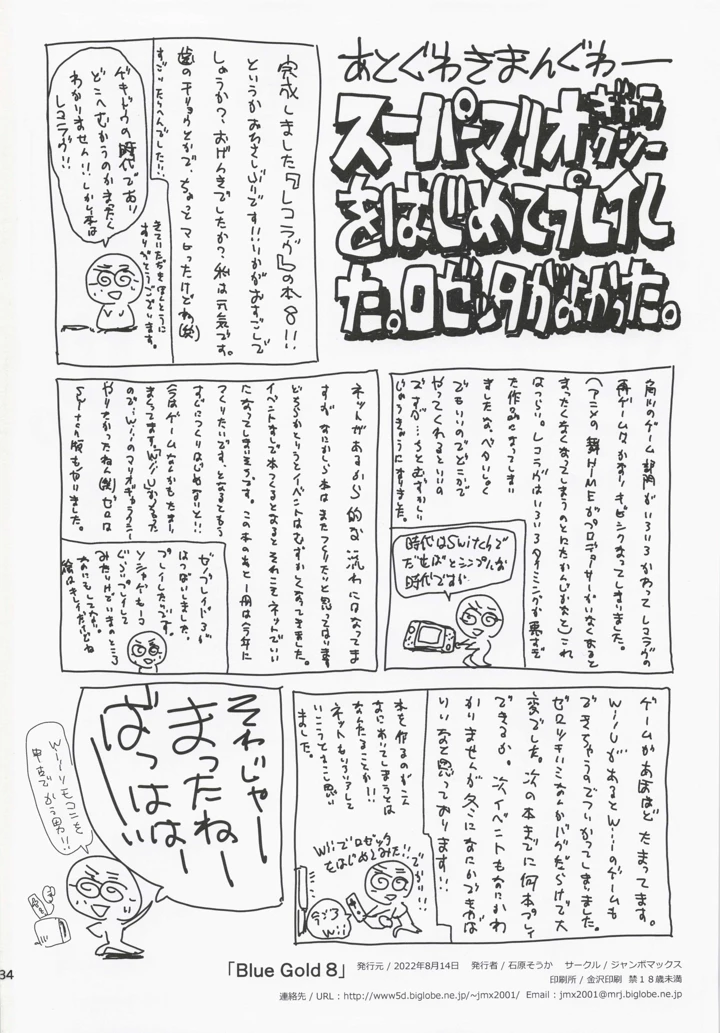 あとぐわきまんぐわー
スーパーマリオギャラクシー
をはじめてプレイし
た。ロゼッタがよかった。
完成しました『レコラヴ』の本8!!
というかおひさしぶりです!!いかがおすごしで
しょうか?おげんきでしたか?私は元気です。
歯のチリョウとかで、ちょっとマヒったけどね(笑)
すごいたいへんでした…
きていただきほんとうに
ありがとうございます。
ゲキドウの時代であり
どこへむかうのかまったく
わかりません!!しかし本は
レコラヴ!!
角川のゲーム部門がいろいろかわってレコラヴの
再ゲーム化がかなりキビシクなってしまいました。
(アニメの舞HIMEがプロデューサーがいなくなると
まったくなくなってしまうのとにたかんじかなと)これ
はつらい。レコラヴはいろいろタイミングが悪すぎ
た作品になってしまい
ましたな。ベタいしく
でもいいのでどこかで
やってくれるといいの
ですが…ちとむずかしい
じょうきょうになりました。
時代はSwitchで
だせばとシンプルな
時代ですが
ネットがあるから的な流れになってま
すが、なにかしら本はまたつくりたいと思っております
どちらかというとイベントはむずかしくなってきました。
イベントなしで本てなるとなるとそれこそネットでいい
になってしまいそうです。この本のあと一冊は今年に
つくりたいです。となるともう
すぐにつくりはじめないと!!
今はゲームなんかもたまり
まくってます。WiiUがのこった
ので、Wiiのマリオギャラクシー
やりたかったねん(笑)ゼロは
Switch版もやりました。
ゼノブレイド3が
はつばいしました。
プレイしたいです。
ソシャゲも1コ
ぐらいプレイして
みたいけどいまのところ
なにもしてない。
絵はキレイだけどね
ゲームがあほほどたまってます。
WiiUがあるとWiiのゲームも
できちゃうのでついかってしまいました。
ゼロッチィミなんかバグだらけで大
変でした。次の本までに何本プレイ
できるか。次イベントもなにかわ
かりませんが冬になにかできれば
いいなと思っております!!
本を作るのがええ
なにおいてしまうとは
なんたることか!!
ネットもいろいろして
いこうとすこし思い
ました。
Wiiでロゼッタ
をはじめてみた!!
でかい!!
今ごろ
Wii
それじゃー
まったねー
ばっはは
ーい
Wiiリモコンを
中古でかう男!!
34
「Blue Gold 8」 発行元 / 2022年8月14日 発行者 / 石原そうか サークル / ジャンボマックス
印刷所 / 金沢印刷 禁18歳未満
連絡先 / URL : http://www5d.biglobe.ne.jp/~jmx2001/ Email : jmx2001@mrj.biglobe.ne.jp